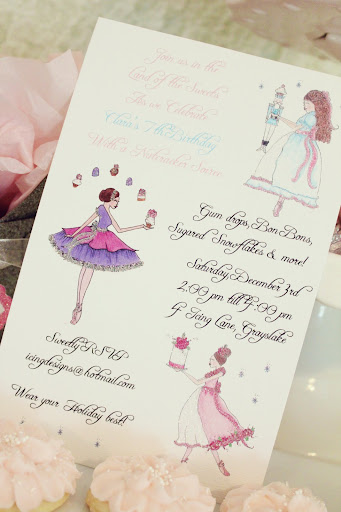 Join us in the
Land of the Sweets
As we Celebrate
Clara's 7th Birthday
With a Nutcracker Soiree
Gum drops, Bon Bons,
Sugared Snowflakes & more!
Saturday, December 3rd
2:00 pm till 4:00 pm
4 Icing Lane, Grayslake
Sweetly RSVP
icingdesigns@hotmail.com
Wear your Holiday best!